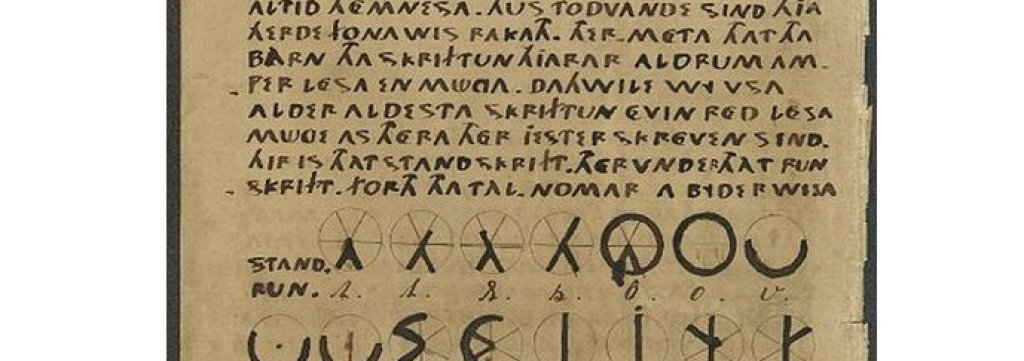 ALTID HEMNESA. HUS TODVANDE SIND HIA
HERDE FON A WIS RAKATH. THER META THAT THA
BARN THA SKRIFTUN HIARAR ALDRUM AM-
PER LESA EN MUGA. DAHWILE WY VSA
ALDER ALDESTA SKRIFTUN EVIN RED LESA
MUGE AS THERA THER IESTER SKREVEN SIND.
HIR IS THAT STANDSKRIFT. THERVNDER THAT RUN
SKRIFT. FORTH THA TAL-NOMAR A BYDER WISA
STAND.
RUN.